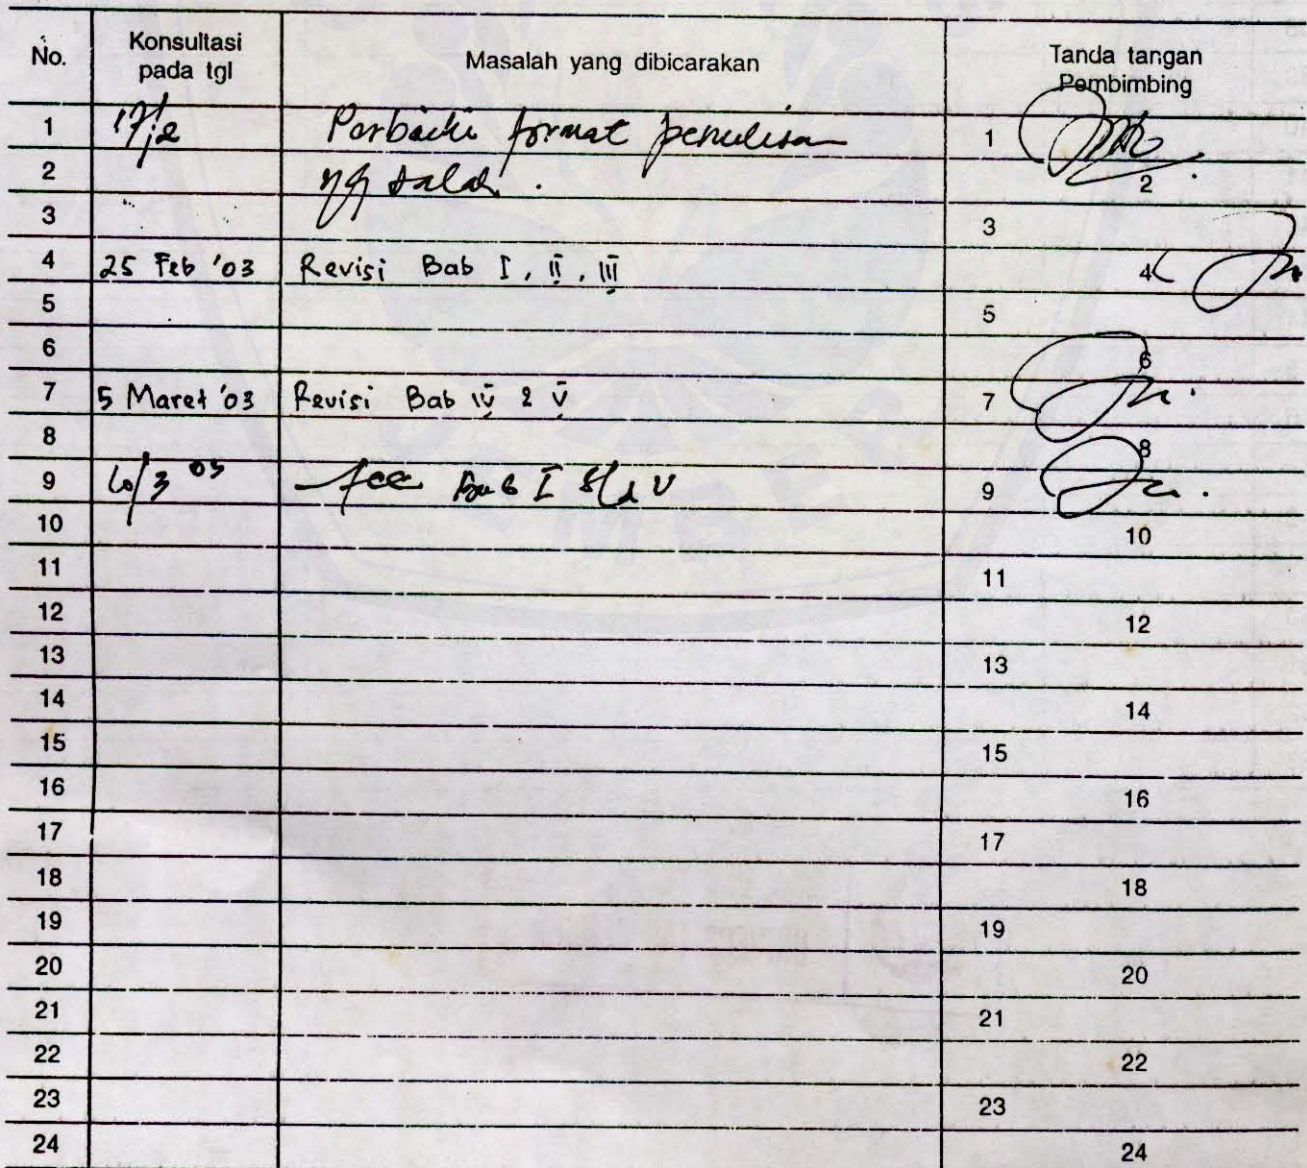 No. Konsultasi pada tgl Masalah yang dibicarakan Tanda tangan Pembimbing
1 17/2 Perbaiki format penulisan 1
2 yg salah. 2
3 3
4 25 Feb '03 Revisi Bab I, II, III 4
5 5
6 6
7 5 Maret '03 Revisi Bab IV & V 7
8 8
9 10/3 03 Acc Bab I s/d V 9
10 10
11 11
12 12
13 13
14 14
15 15
16 16
17 17
18 18
19 19
20 20
21 21
22 22
23 23
24 24